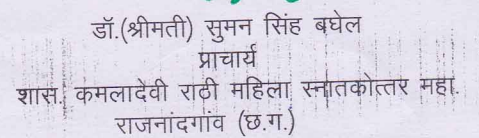 डॉ.(श्रीमती) सुमन सिंह बघेल
प्राचार्य
शास. कमलादेवी राठी महिला स्नातकोत्तर महा.
राजनांदगांव (छ.ग.)